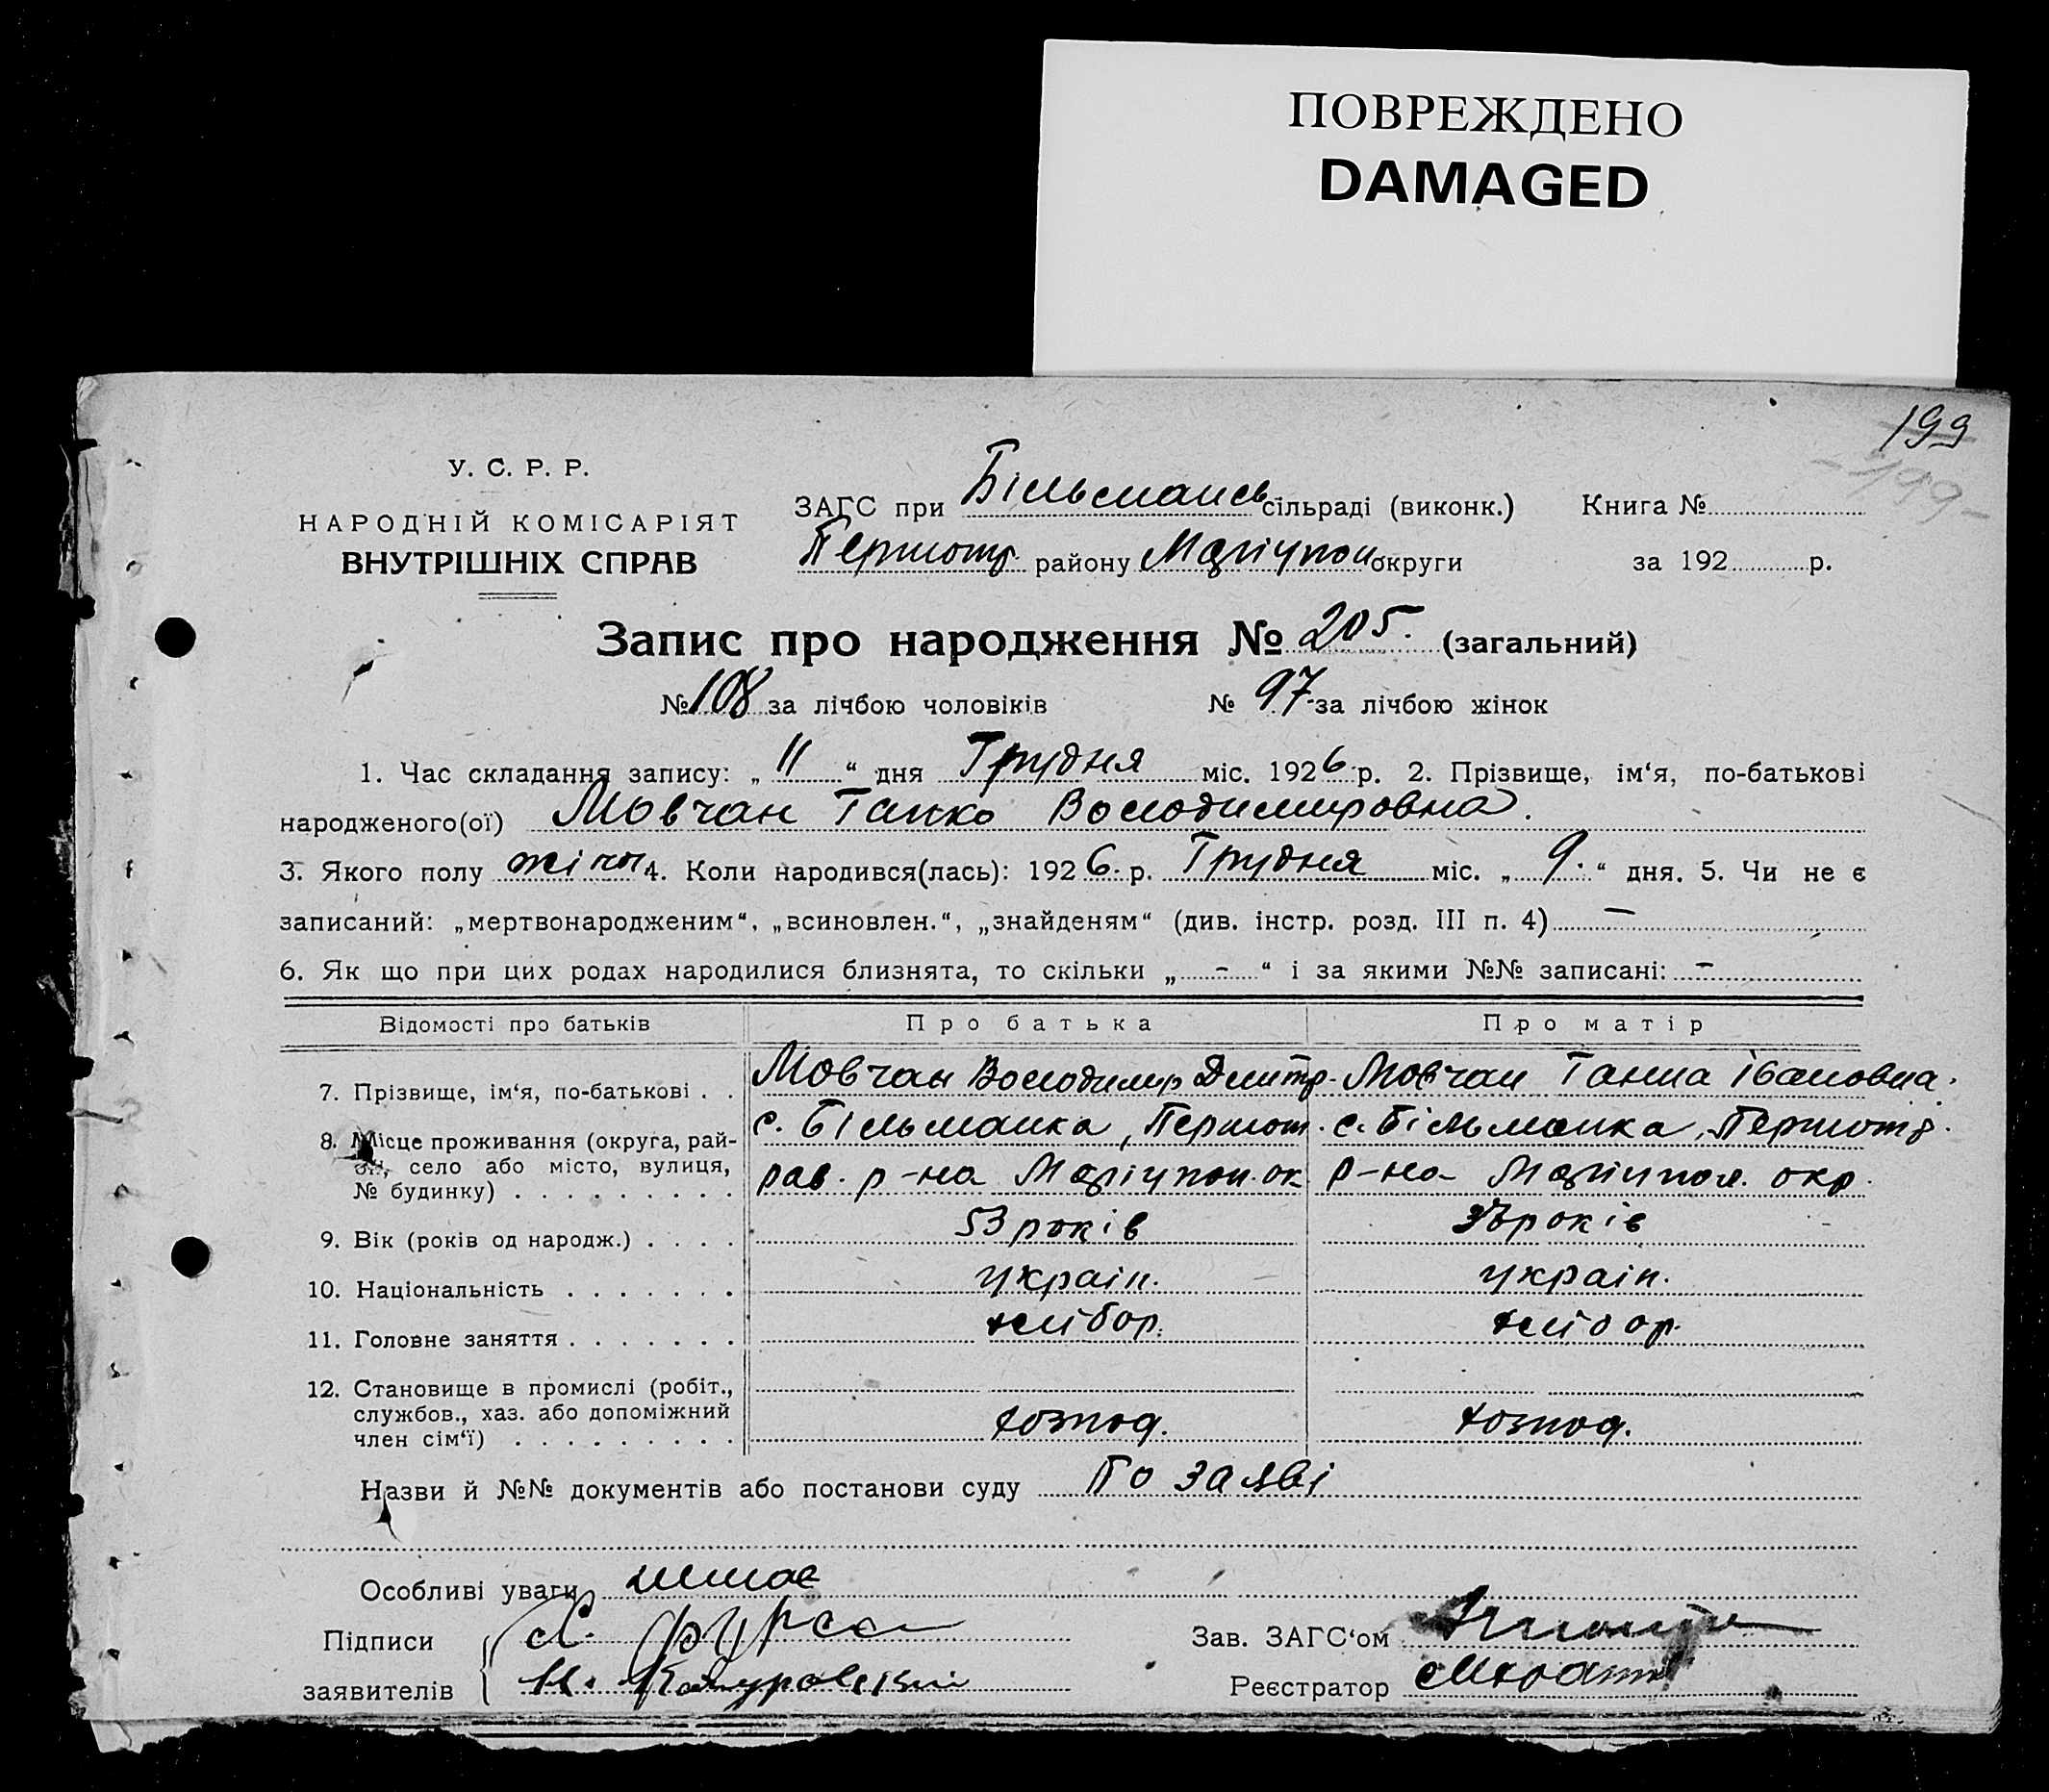 ПОВРЕЖДЕНО
DAMAGED
199
-199-
У. С. Р. Р.
НАРОДНІЙ КОМІСАРІЯТ
ВНУТРІШНІХ СПРАВ
ЗАГС при Більмансь. сільраді (виконк.) Книга №
Першотр. району Маріупол округи за 192 р.
Запис про народження № 205. (загальний)
№ 108 за лічбою чоловіків № 97 за лічбою жінок
1. Час складання запису: „ 11 “ дня Грудня міс. 1926 р. 2. Прізвище, ім‘я, по-батькові
народженого(ої) Мовчан Ганна Володимировна.
3. Якого полу жіноч 4. Коли народився(лась): 1926. р. Грудня міс. „ 9. “ дня. 5. Чи не є
записаний: „мертвонародженим“, „всиновлен.“, „знайденям“ (див. інстр. розд. III п. 4) —
6. Як що при цих родах народилися близнята, то скільки „ - “ і за якими №№ записані: -
Відомості про батьків Про батька Про матір
7. Прізвище, ім‘я, по-батькові . . Мовчан Володимир Дмитр. Мовчан Ганна Івановна.
8. Місце проживання (округа, рай- с. Більманка, Першот. с. Більманка, Першотр.
он, село або місто, вулиця, рав. р-на Маріупол. ок р-на Маріупол. окр.
№ будинку) . . . . . . . . .
9. Вік (років од народж.) . . . . 53 років років
10. Національність . . . . . . . україн. україн.
11. Головне заняття . . . . . . . хлібор. хлібор.
12. Становище в промислі (робіт.,
службов., хаз. або допоміжний
член сім‘ї) . . . . . . . . . хозпод. хозпод.
Назви й №№ документів або постанови суду По заяві
Особливі уваги немає
Підписи Зав. ЗАГС‘ом
заявителів Реєстратор